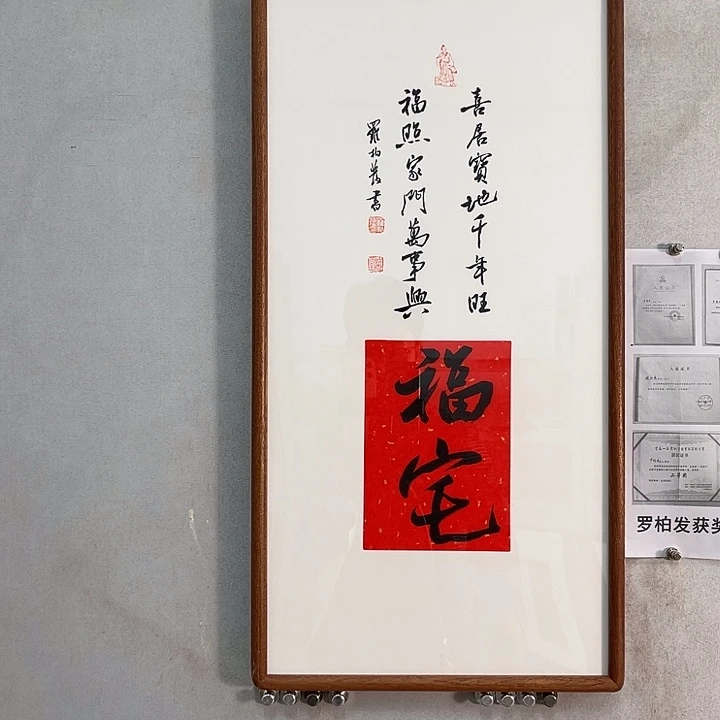 喜居寶地千年旺
福照家門萬事興
羅柏發書
福宅
入展证书
罗柏发获奖